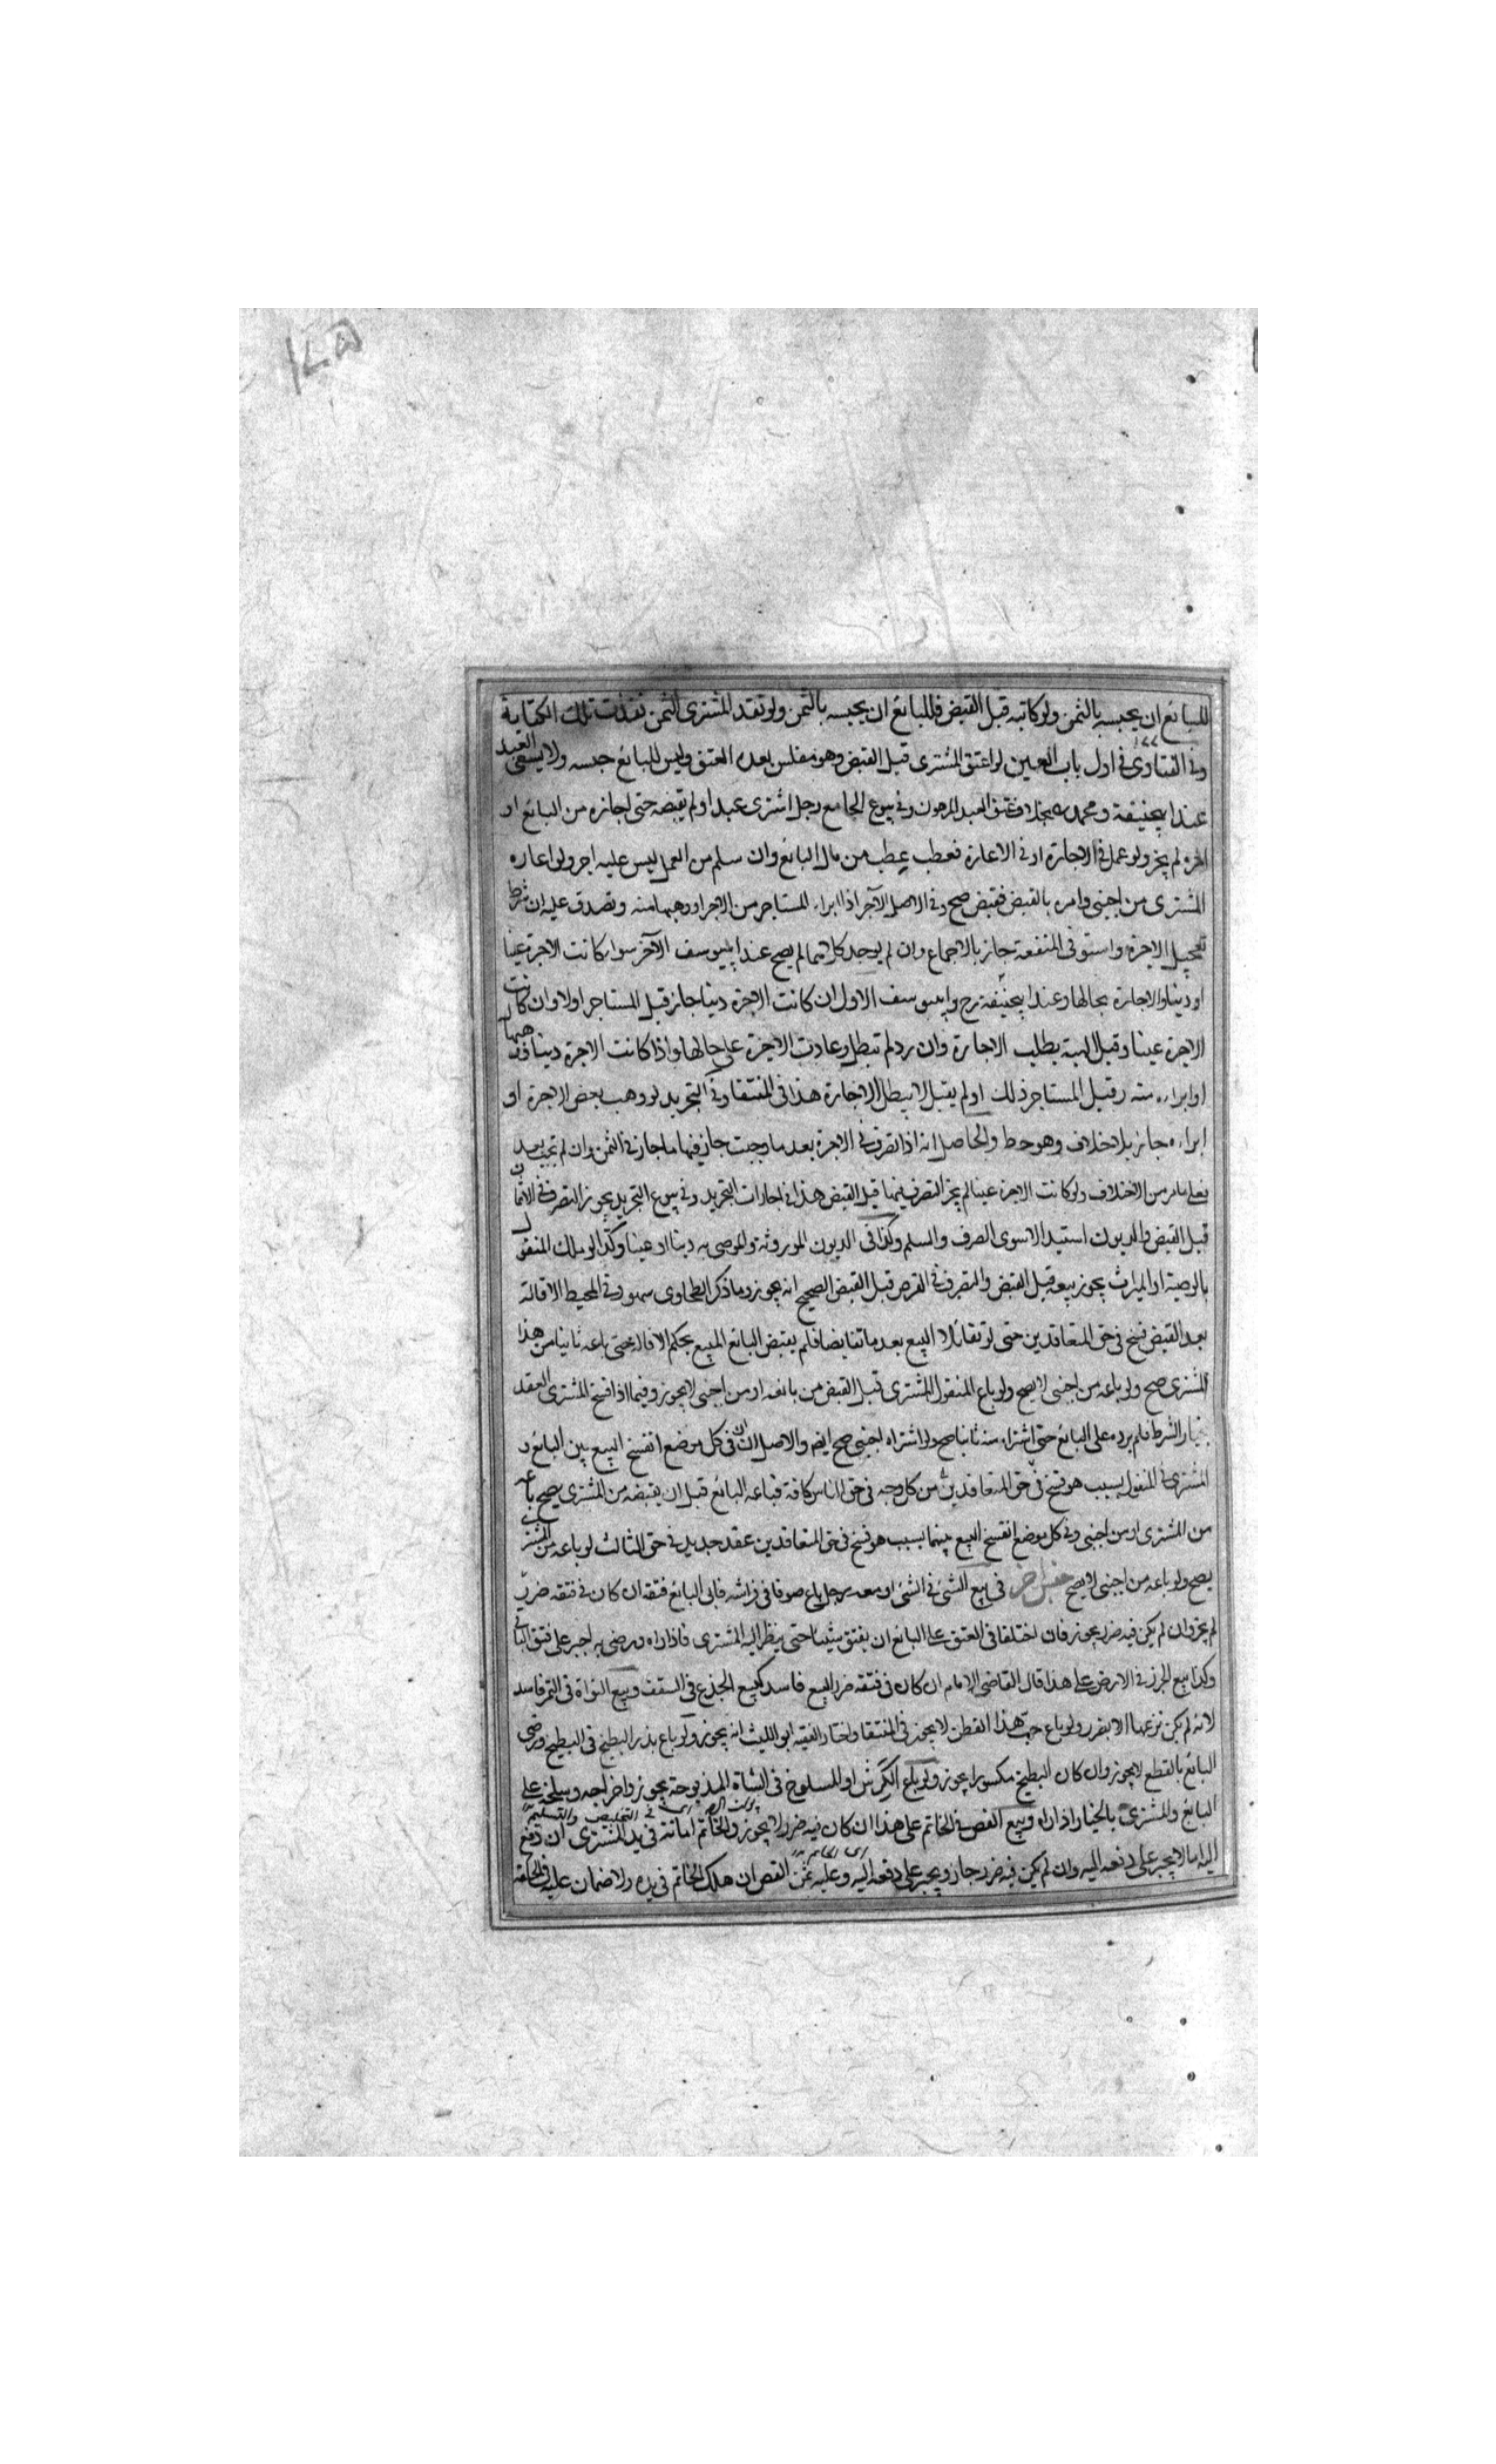 ١٧٥
للبائع ان يحبسه بالثمن ولو كاتبه قبل القبض فللبائع ان يحبسه بالثمن ولو نقد المشترى الثمن نفذت تلك الكتابة
وفى الفتاوى فى اول باب العين لو اعتق المشترى قبل القبض وهو مفلس بعد العتق وليس للبائع حبسه ولا يسعى العبد
عند ابيحنيفة ومحمد بخلاف عتق العبد المرهون وفى بيوع الجامع رجل اشترى عبدا ولم يقبضه حتى اجازه من البائع او
اجره لم يجز ولو عمل فى الاجارة او فى الاعارة فعطب عطب من مال البائع وان سلم من العمل ليس عليه اجر ولو اعاره
المشترى من اجنبى وامره بالقبض فقبض صح وفى الاصل الآجر اذا ابراء المستاجر من الاجر او وهبها منه وتصدق عليه ان شرط
تعجيل الاجرة واستوفى المنفعة جاز بالاجماع وان لم يوجد كلاهما لم يصح عند ابييوسف الآخر سواء كانت الاجرة عينا
او دينا والاجارة بحالها وعند ابيحنيفة رح وابييوسف الاول ان كانت الاجرة دينا جاز قبل المستاجر اولا وان كانت
الاجرة عينا وقبل الهبة يطلب الاجارة وان رد لم تبطل وعادت الاجرة على حالها واذا كانت الاجرة دينا فوهبها
او ابراه منه وقبل المستاجر ذلك او لم يقبل لا تبطل الاجارة هذا فى المنتقا وفى التجريد لو وهب بعض الاجرة او
ابراه جاز بلا خلاف وهو حط والحاصل انه اذا تصرف فى الاجرة بعد ما وجبت جاز فيها ما جاز فى الثمن وان لم تجب بعد
فعلى ما مر من الاختلاف ولو كانت الاجرة عينا لم يجز التصرف فيها قبل القبض هذا فى اجارات التجريد وفى بيوع التجريد يجوز التصرف فى الاثمان
قبل القبض والديون استبد الا سوى الصرف والسلم وكذا فى الديون الموروثة والموصى به دينا او عينا وكذا لو ملك المنقول
بالوصية او الميراث يجوز بيعه قبل القبض والتصرف فى القرض قبل القبض الصحيح انه يجوز وما ذكر الطحاوى سهو وفى المحيط الاقالة
بعد القبض فسخ فى حق المتعاقدين حتى لو تقائلا البيع بعد ما تقابضا فلم يقبض البائع المبيع بحكم الاقالة حتى باعه ثانيا من هذا
المشترى صح ولو باعه من اجنبى لا يصح ولو باع المنقول المشترى قبل القبض من بائعه او من اجنبى لا يجوز وفيما اذا فسخ المشترى العقد
بخيار الشرط فلم يرده على البائع حتى اشتراه منه ثانيا صح ولو اشتراه اجنبى صح ايضا والاصل ان فى كل موضع انفسخ البيع بين البائع و
المشترى فى المنقول بسبب هو فسخ فى حق المتعاقدين من كل وجه فى حق الناس كافة فباعه البائع قبل ان يقبضه من المشترى يصح باعه
من المشترى او من اجنبى وفى كل موضع انفسخ البيع بينهما بسبب هو فسخ فى حق المتعاقدين عقد جديد فى حق الثالث لو باعه من المشترى
يصح ولو باعه من اجنبى لا يصح جنس آخر فى بيع الشئ فى الشئ او معه رجل باع صوفا فى فراشه فابى البائع فتقه ان كان فى فتقه ضرر
لم يجز وان لم يكن فيه ضرر يجوز فان اختلفا فى الفتق على البائع ان يفتق شيئا حتى ينظر اليه المشترى فاذا راه ورضى به اجبر على فتق الباقى
وكذا بيع الجزر فى الارض على هذا قال القاضى الامام ان كان فى فتقه ضرر البيع فاسد كبيع الجذع فى السقف وبيع النواة فى التمر فاسد
لانه لم يكن نزعها الا بضرر ولو باع حب هذا القطن لا يجوز فى المنتقا واختار الفقيه ابو الليث انه يجوز ولو باع بذر البطيخ فى البطيخ ورضى
البائع بالقطع لا يجوز وان كان البطيخ مكسورا يجوز ولو باع الكرش او المسلوخ فى الشاة المذبوحة يجوز واخراجه وسلخه على
البائع والمشترى بالخيار اذا راه وبيع الفص فى الخاتم على هذا ان كان فيه ضرر لا يجوز والخاتم امانة فى يد المشترى ان دفع
اليه لا يجبر على دفعه اليه وان لم يكن فيه ضرر جاز ويجبر على دفعه اليه وعليه ثمن الفص ان هلك الخاتم فى يده ولا ضمان عليه فى الحلقة